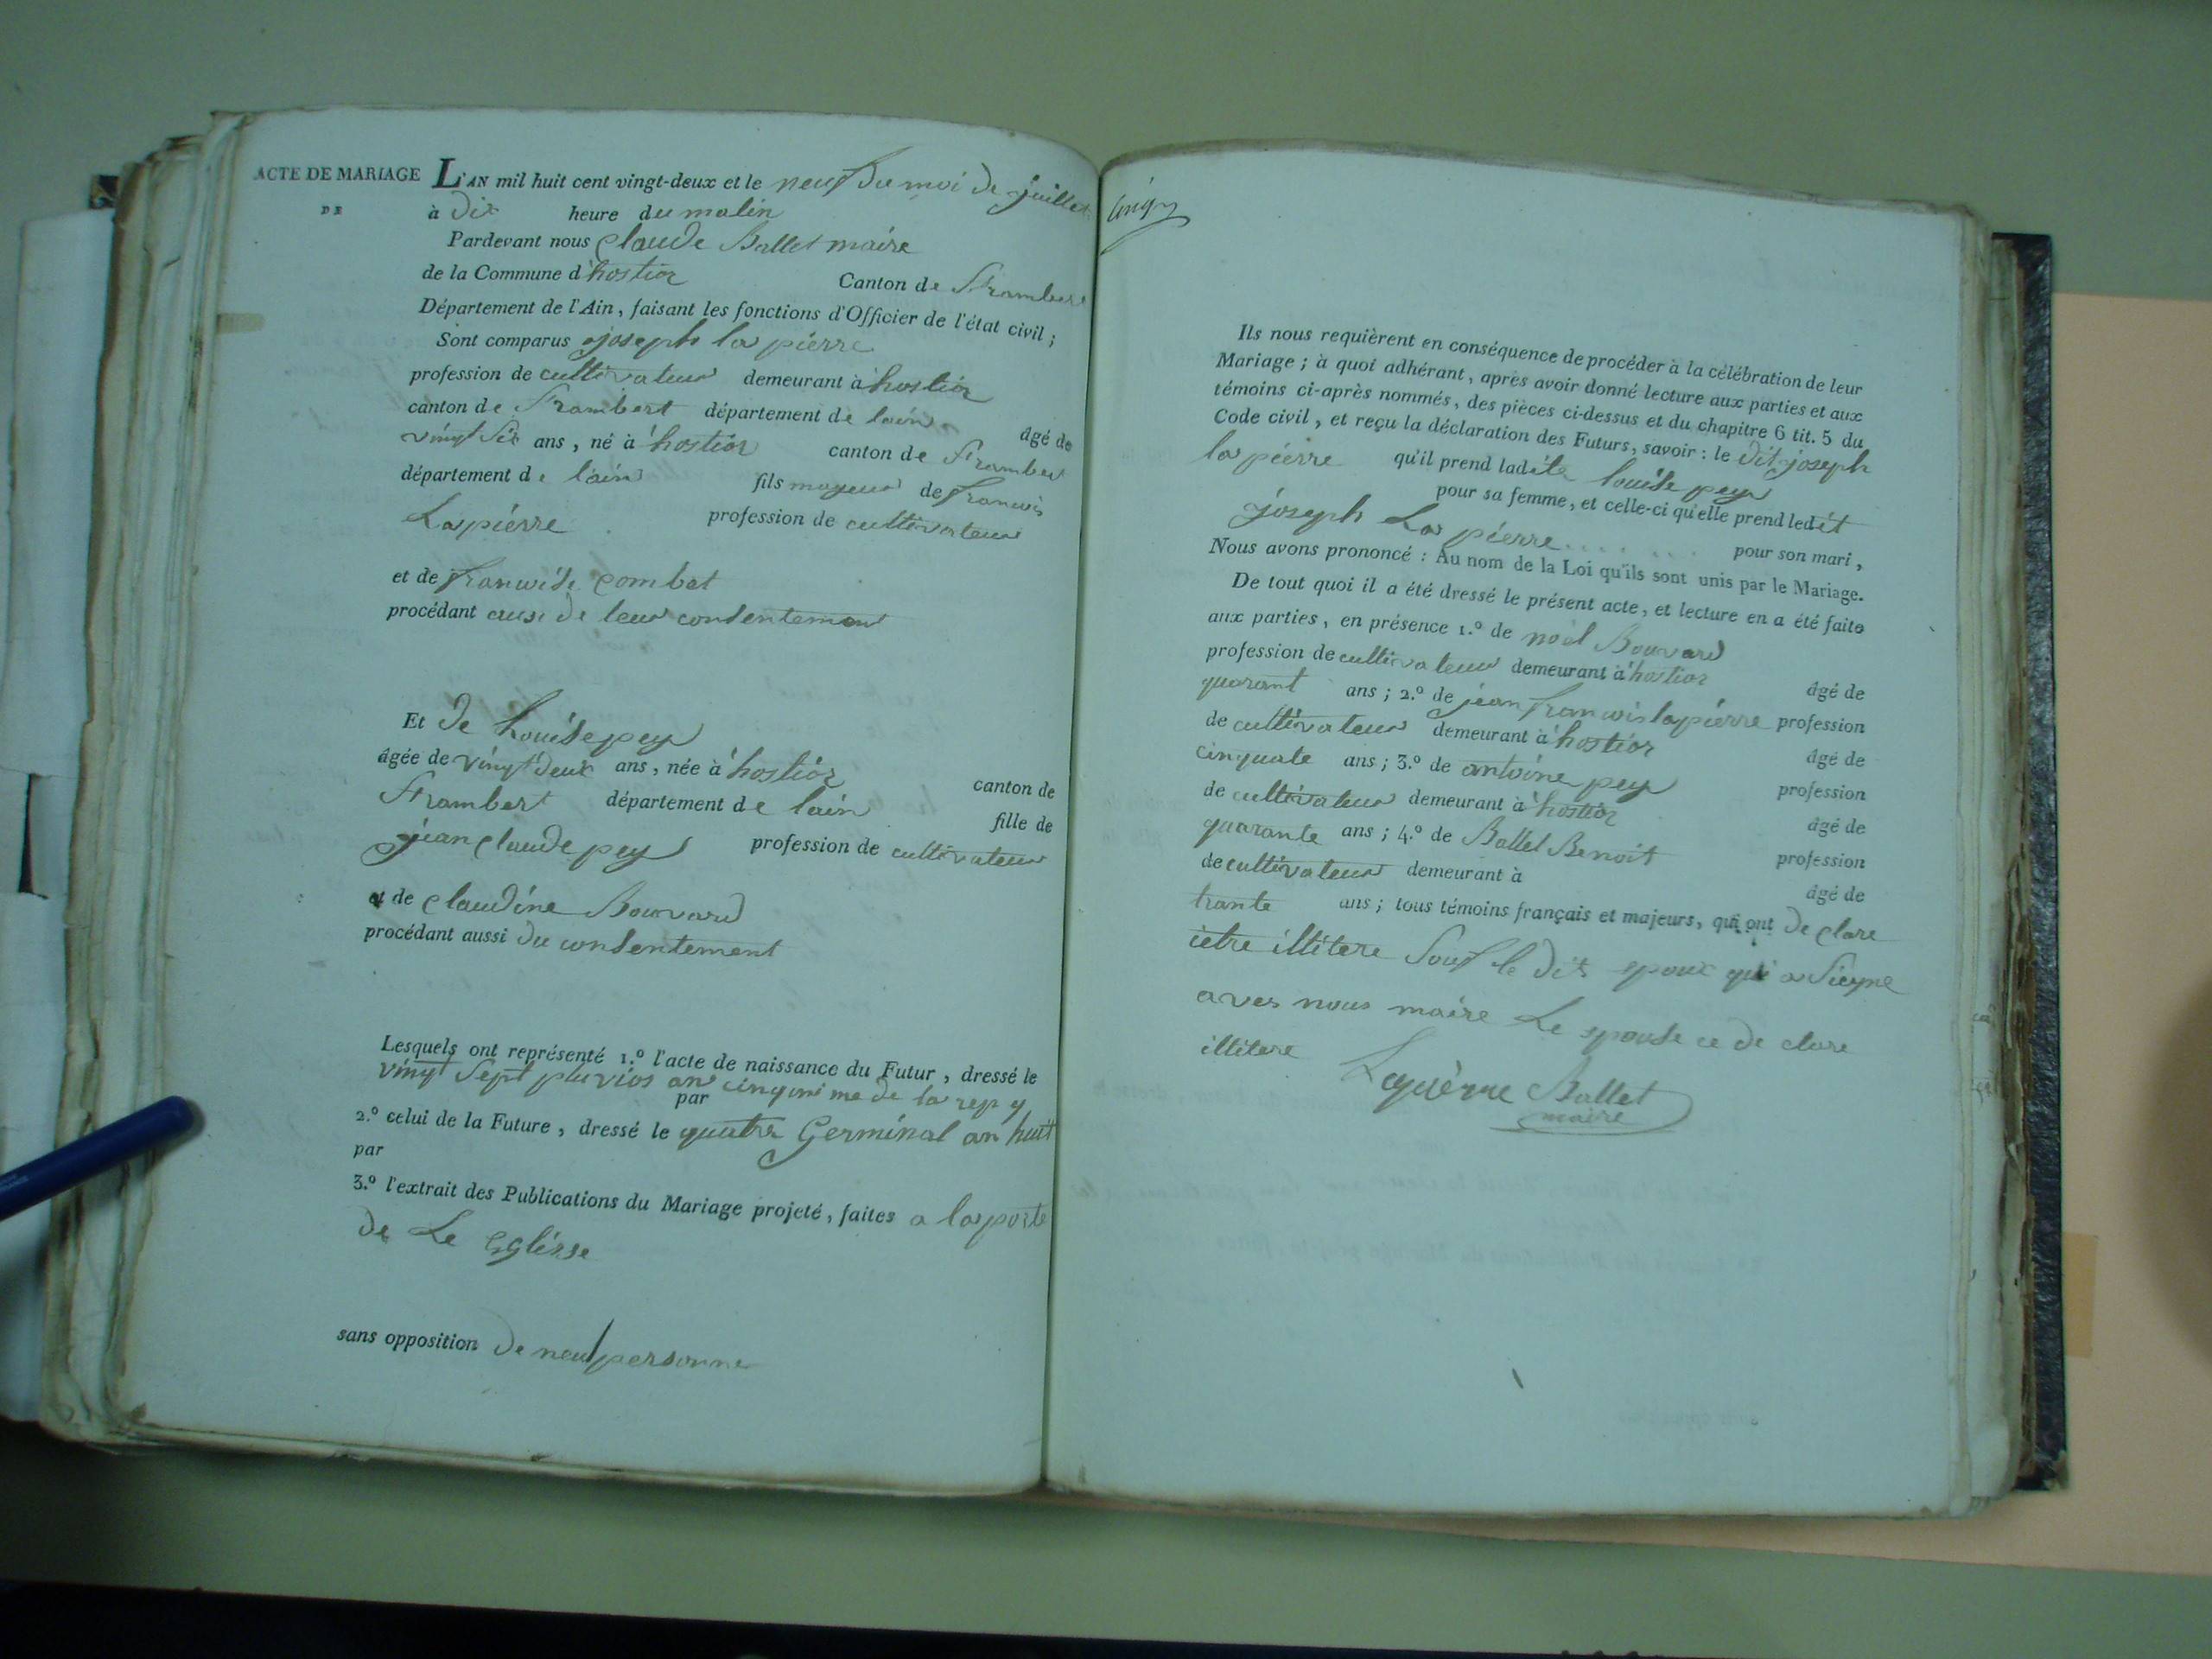 ACTE DE MARIAGE L'AN mil huit cent vingt-deux et le neuf du moi de juillet
DE à dix heure du matin
Pardevant nous Claude Ballet maire
de la Commune d'hostior Canton de St rambert
Département de l'Ain, faisant les fonctions d'Officier de l'état civil;
Sont comparus joseph la pierre
profession de cultivateur demeurant à hostior
canton de St rambert département de lain âgé de
vingt six ans, né à hostior canton de St rambert
département de lain fils mageur de francois
La pierre profession de cultivateur
et de francoise Combet
procédant ausi de leur consentement
Et de Louise pey
âgée de vingt deux ans, née à hostior canton de
St rambert département de lain fille de
jean claude pey profession de cultivateur
et de claudine Bouvard
procédant aussi du consentement
Lesquels ont représenté 1.º l'acte de naissance du Futur, dressé le
vingt sept pluvios an cinqui me de la rep
par
2.º celui de la Future, dressé le quatre Germinal an huit
par
3.º l'extrait des Publications du Mariage projeté, faites a la porte
de Le Eglisse
sans opposition de neul personne
Ils nous requièrent en conséquence de procéder à la célébration de leur
Mariage; à quoi adhérant, après avoir donné lecture aux parties et aux
témoins ci-après nommés, des pièces ci-dessus et du chapitre 6 tit. 5 du
Code civil, et reçu la déclaration des Futurs, savoir: le dit joseph
la pierre qu'il prend ladite louise pey
pour sa femme, et celle-ci qu'elle prend ledit
joseph La pierre . . . . . . . pour son mari,
Nous avons prononcé: Au nom de la Loi qu'ils sont unis par le Mariage.
De tout quoi il a été dressé le présent acte, et lecture en a été faite
aux parties, en présence 1.º de noel Bouvard
profession de cultivateur demeurant à hostior âgé de
quarant ans; 2.º de jean francois lapierre profession
de cultivateur demeurant à hostior âgé de
cinquate ans; 3.º de antoine pey profession
de cultivateur demeurant à hostior âgé de
quarante ans; 4.º de Ballet Benoit profession
de cultivateur demeurant à âgé de
trante ans; tous témoins français et majeurs, qui ont de clare
ietre illitere souf le dit epoux qui a siegne
aves nous maire Le epouse ce de clare
illitere Ballet
maire